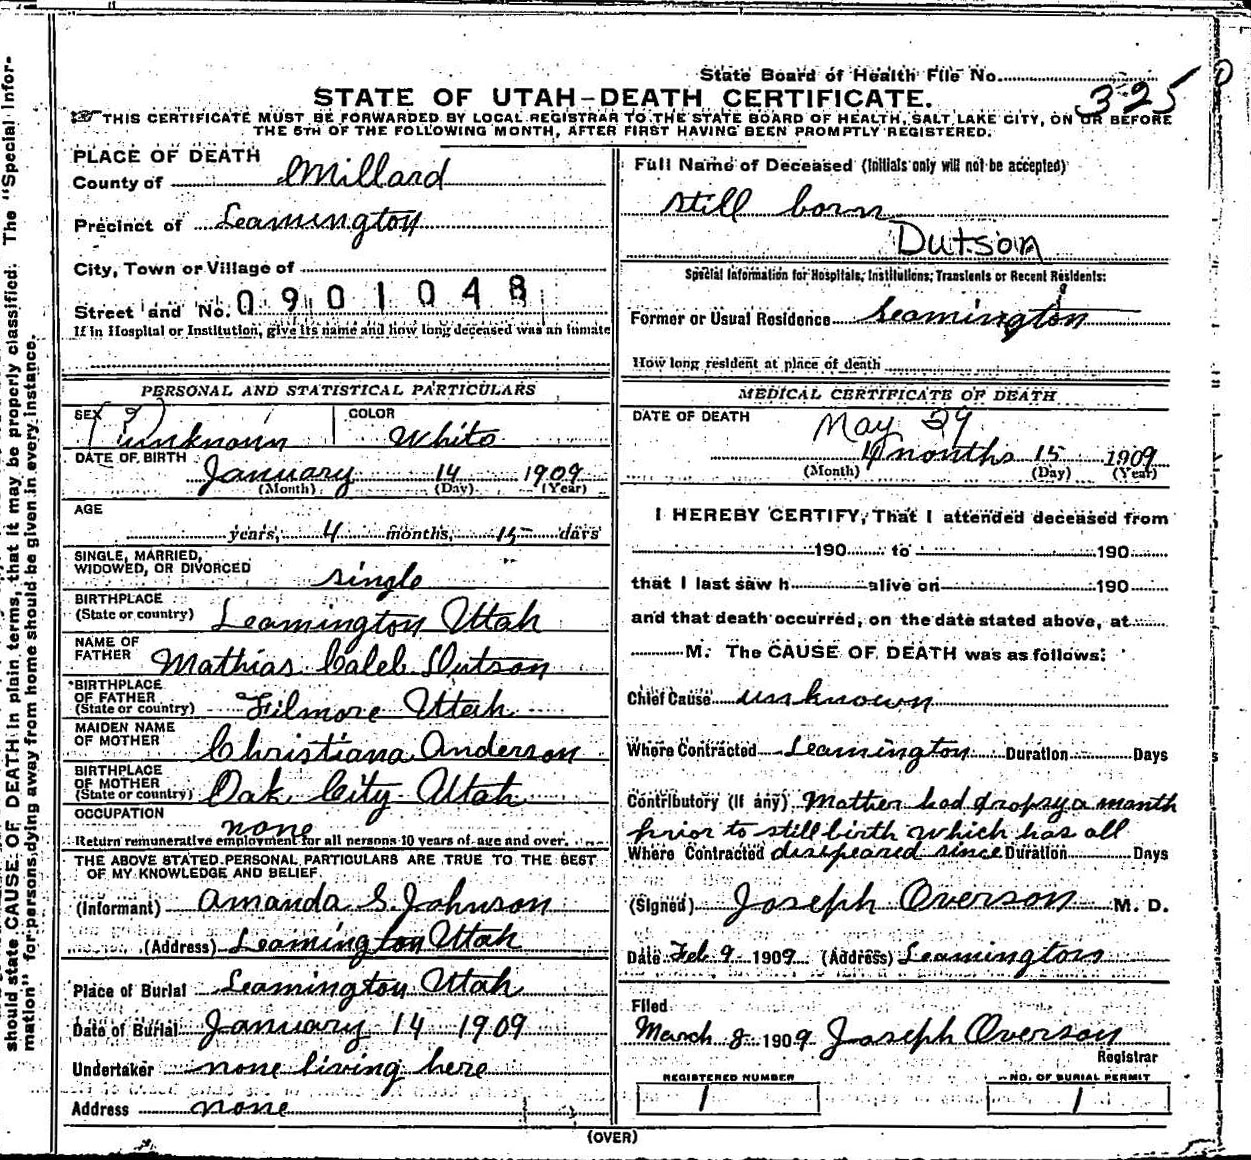 State Board of Health File No.
325
STATE OF UTAH-DEATH CERTIFICATE.
THIS CERTIFICATE MUST BE FORWARDED BY LOCAL REGISTRAR TO THE STATE BOARD OF HEALTH, SALT LAKE CITY, ON OR BEFORE
THE 5TH OF THE FOLLOWING MONTH, AFTER FIRST HAVING BEEN PROMPTLY REGISTERED.
should state CAUSE OF DEATH in plain terms, that it may be properly classified. The "Special Infor-
mation" for persons dying away from home should be given in every instance.
PLACE OF DEATH
County of Millard
Precinct of Leamington
City, Town or Village of
Street and No. 0901048
If in Hospital or Institution, give its name and how long deceased was an inmate
PERSONAL AND STATISTICAL PARTICULARS
SEX (?) unknown COLOR White
DATE OF BIRTH
January 14 1909
(Month) (Day) (Year)
AGE
years, 4 months, 15 days
SINGLE, MARRIED,
WIDOWED, OR DIVORCED single
BIRTHPLACE
(State or country) Leamington Utah
NAME OF
FATHER Mathias Caleb Dutson
BIRTHPLACE
OF FATHER
(State or country) Filmore Utah
MAIDEN NAME
OF MOTHER Christiana Anderson
BIRTHPLACE
OF MOTHER
(State or country) Oak City Utah
OCCUPATION
none
Return remunerative employment for all persons 10 years of age and over.
THE ABOVE STATED PERSONAL PARTICULARS ARE TRUE TO THE BEST
OF MY KNOWLEDGE AND BELIEF.
(Informant) Amanda S. Johnson
(Address) Leamington Utah
Place of Burial Leamington Utah
Date of Burial January 14 1909
Undertaker none living here
Address none
Full Name of Deceased (Initials only will not be accepted)
still born
Dutson
Special Information for Hospitals, Institutions, Transients or Recent Residents:
Former or Usual Residence Leamington
How long resident at place of death
MEDICAL CERTIFICATE OF DEATH
DATE OF DEATH
May 29
4 months 15 1909
(Month) (Day) (Year)
I HEREBY CERTIFY, That I attended deceased from
190 to 190
that I last saw h alive on 190
and that death occurred, on the date stated above, at
M. The CAUSE OF DEATH was as follows:
Chief Cause unknown
Where Contracted Leamington Duration Days
Contributory (if any) Mother had dropsy a month
prior to still birth which has all
Where Contracted disapeared since Duration Days
(Signed) Joseph Overson M. D.
Date Feb 9 1909 (Address) Leamington
Filed
March 8 1909 Joseph Overson
Registrar
REGISTERED NUMBER
1
NO. OF BURIAL PERMIT
1
(OVER)